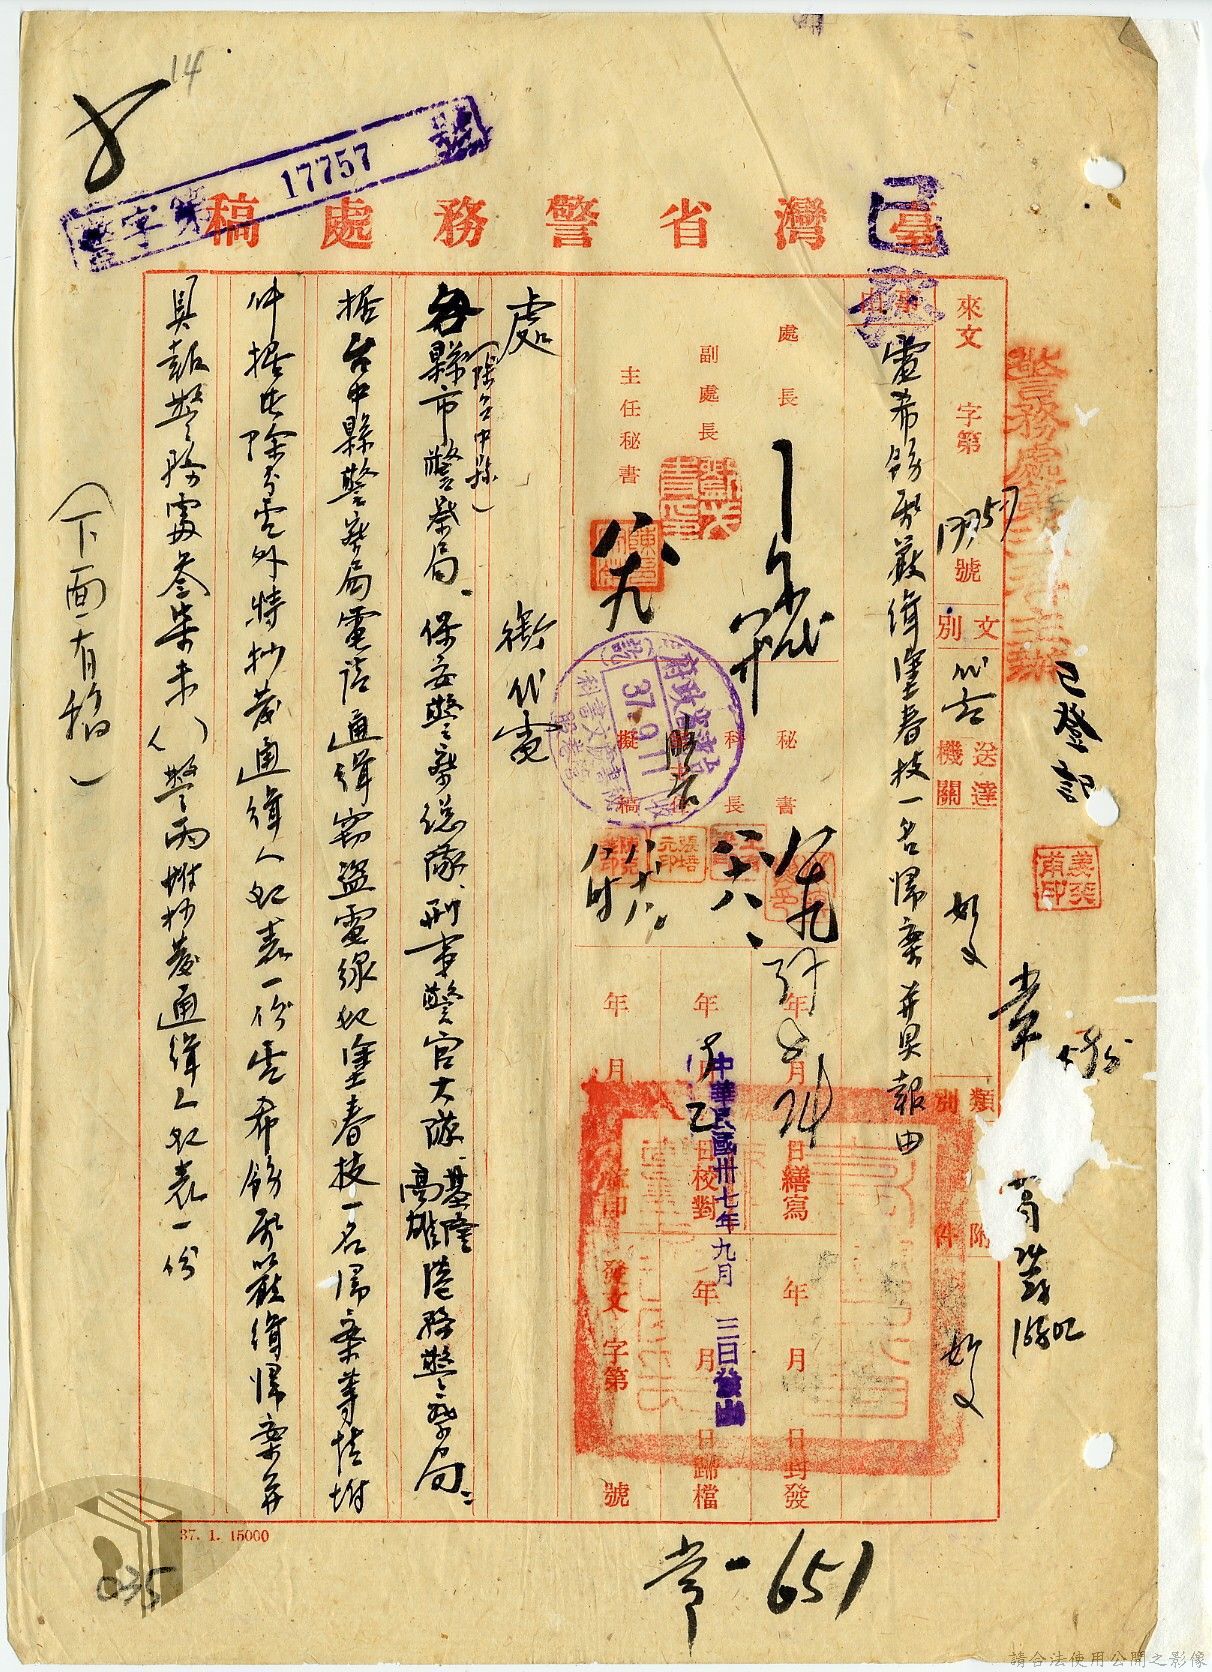 14
警字第 17757 號
臺灣省警務處稿
已發
已登記
來文 字第 17757 號
文別 代電
送達機關 如文
類別
附件 如文
事由
電希飭屬嚴緝塗春枝一名歸案并具報由
處長
副處長
主任秘書
秘書
科長
擬稿
37.9.1
年 8月24日繕寫
年 月 日校對
年 月
年 月 日對發
年 月 日歸檔
發文 字第 號
中華民國卅七年九月三日發出
處 銜代電
各縣市警察局(除台中縣)、保安警察總隊、刑事警官大隊、基隆高雄港務警察局:
據台中縣警察局電請通緝竊盜電線犯塗春枝一名歸案等情附
件據此除分電外特抄發通緝人犯表一份電希飭屬嚴緝歸案并
具報警務處叁柒未( )警丙附抄發通緝人犯表一份
(下面有稿)
37. 1. 15000
常-651
035
請合法使用公開之影像